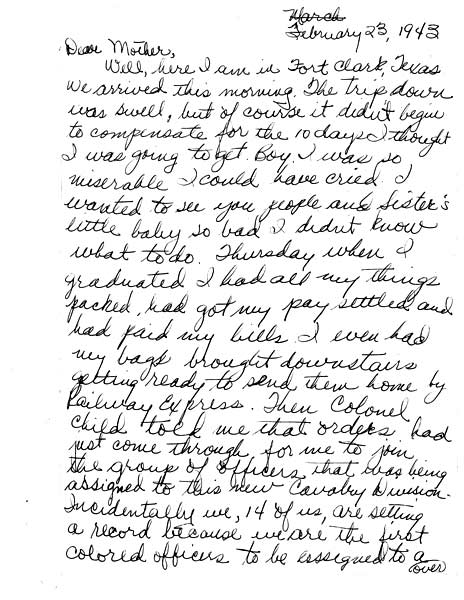 March
February 23, 1943
Dear Mother,
Well, here I am in Fort Clark, Texas
We arrived this morning. The trip down
was swell, but of course it didn't begin
to compensate for the 10 days I thought
I was going to get. Boy, I was so
miserable I could have cried. I
wanted to see you people and Sister's
little baby so bad I didn't know
what to do. Thursday when I
graduated I had all my things
packed, had got my pay settled and
had paid my bills. I even had
my bags brought downstairs
getting ready to send them home by
Railway Express. Then Colonel
Child told me that orders had
just come through for me to join
the group of officers that was being
assigned to this new Cavalry Division.
Incidentally we, 14 of us, are setting
a record because we are the first
colored officers to be assigned to a
over